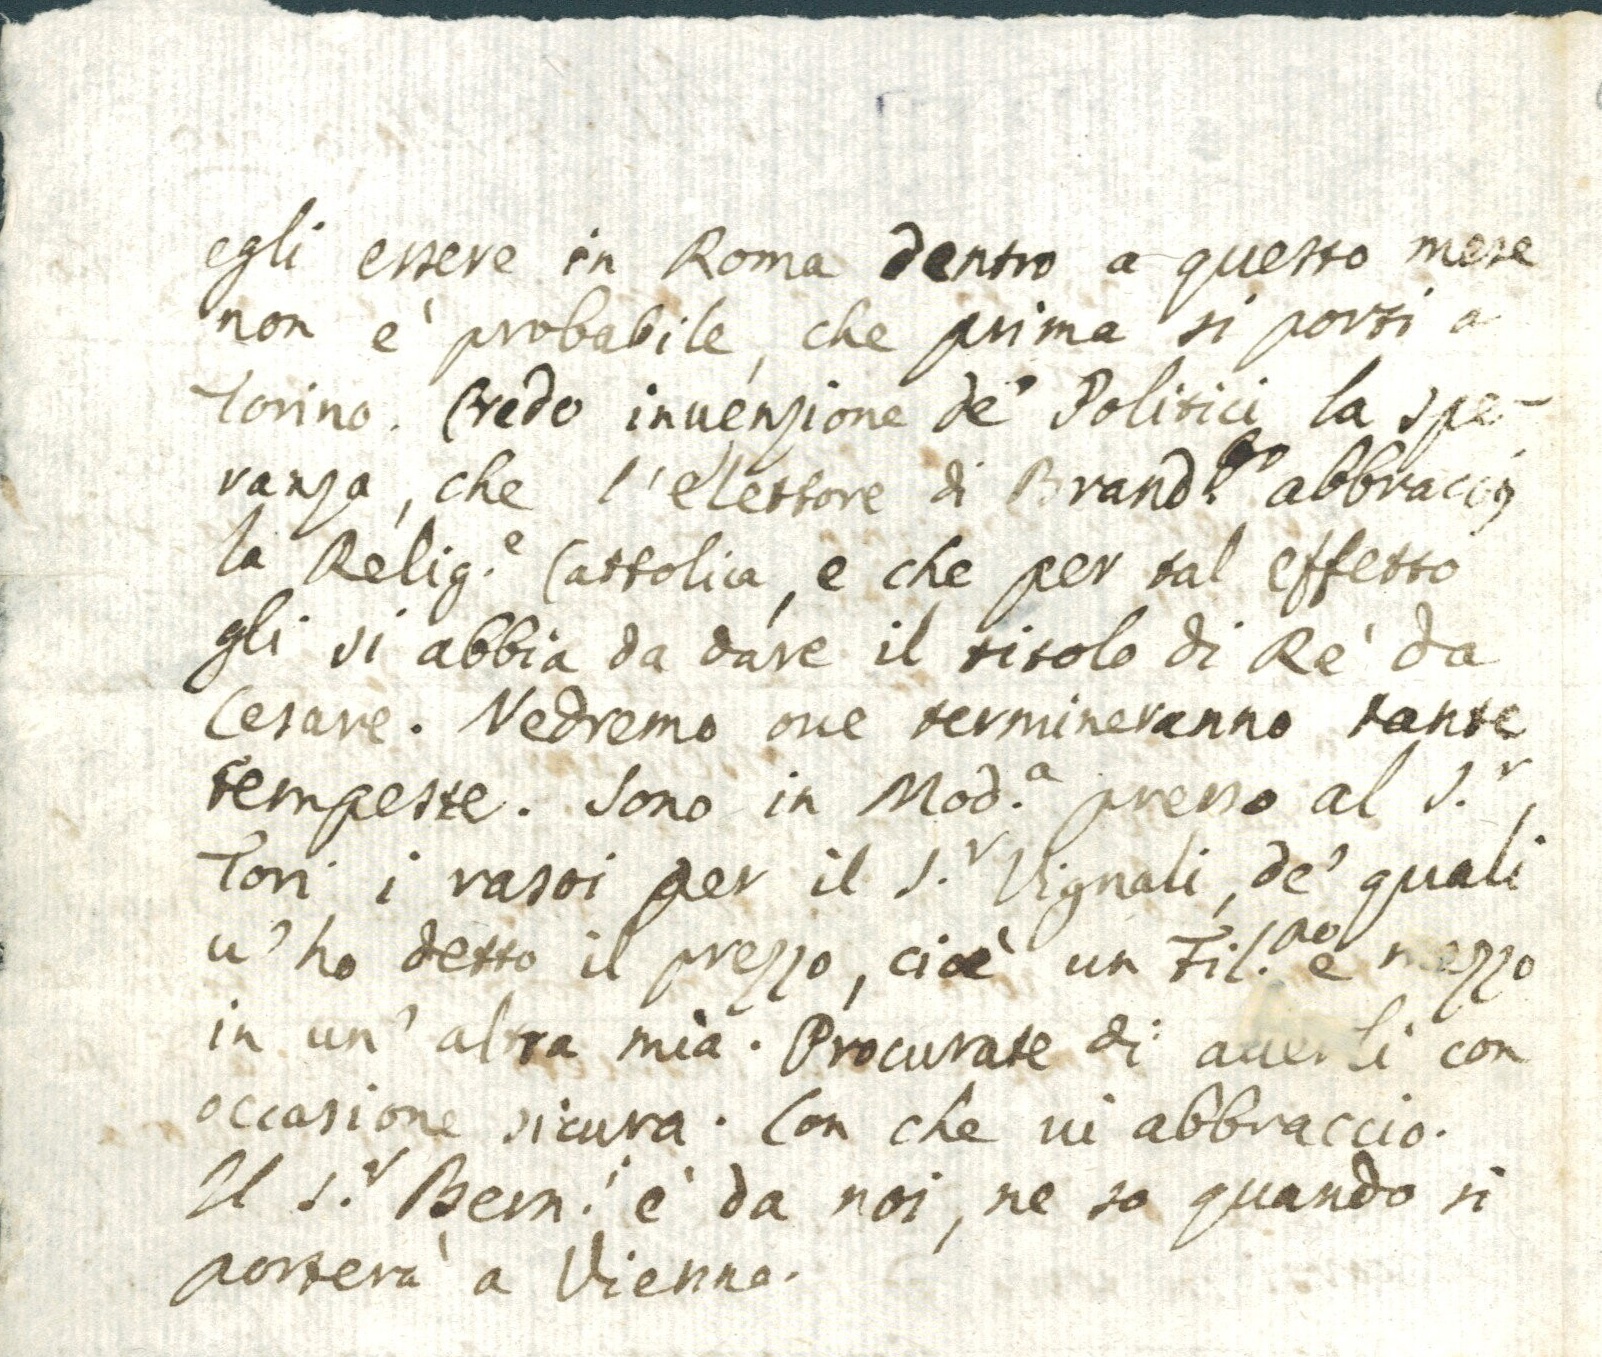 egli essere in Roma dentro a questo mese
non è probabile, che prima si porti a
Torino. Credo invenzione de' Politici la spe-
ranza, che l'elettore di Brand.go abbracci
la Relig.e Cattolica, e che per tal effetto
gli si abbia da dare il titolo di Rè da
Cesare. Vedremo ove termineranno tante
tempeste. Sono in Mod.a presso al S.r
Tori i rasoi per il S.r Vignali, de' quali
u' ho detto il prezzo, cioè un Fil.po e mezzo
in un' altra mia. Procurate di auerli con
occasione sicura. Con che ui abbraccio.
Il S.r Bern.i è da noi, ne so quando si
porterà a Vienna.